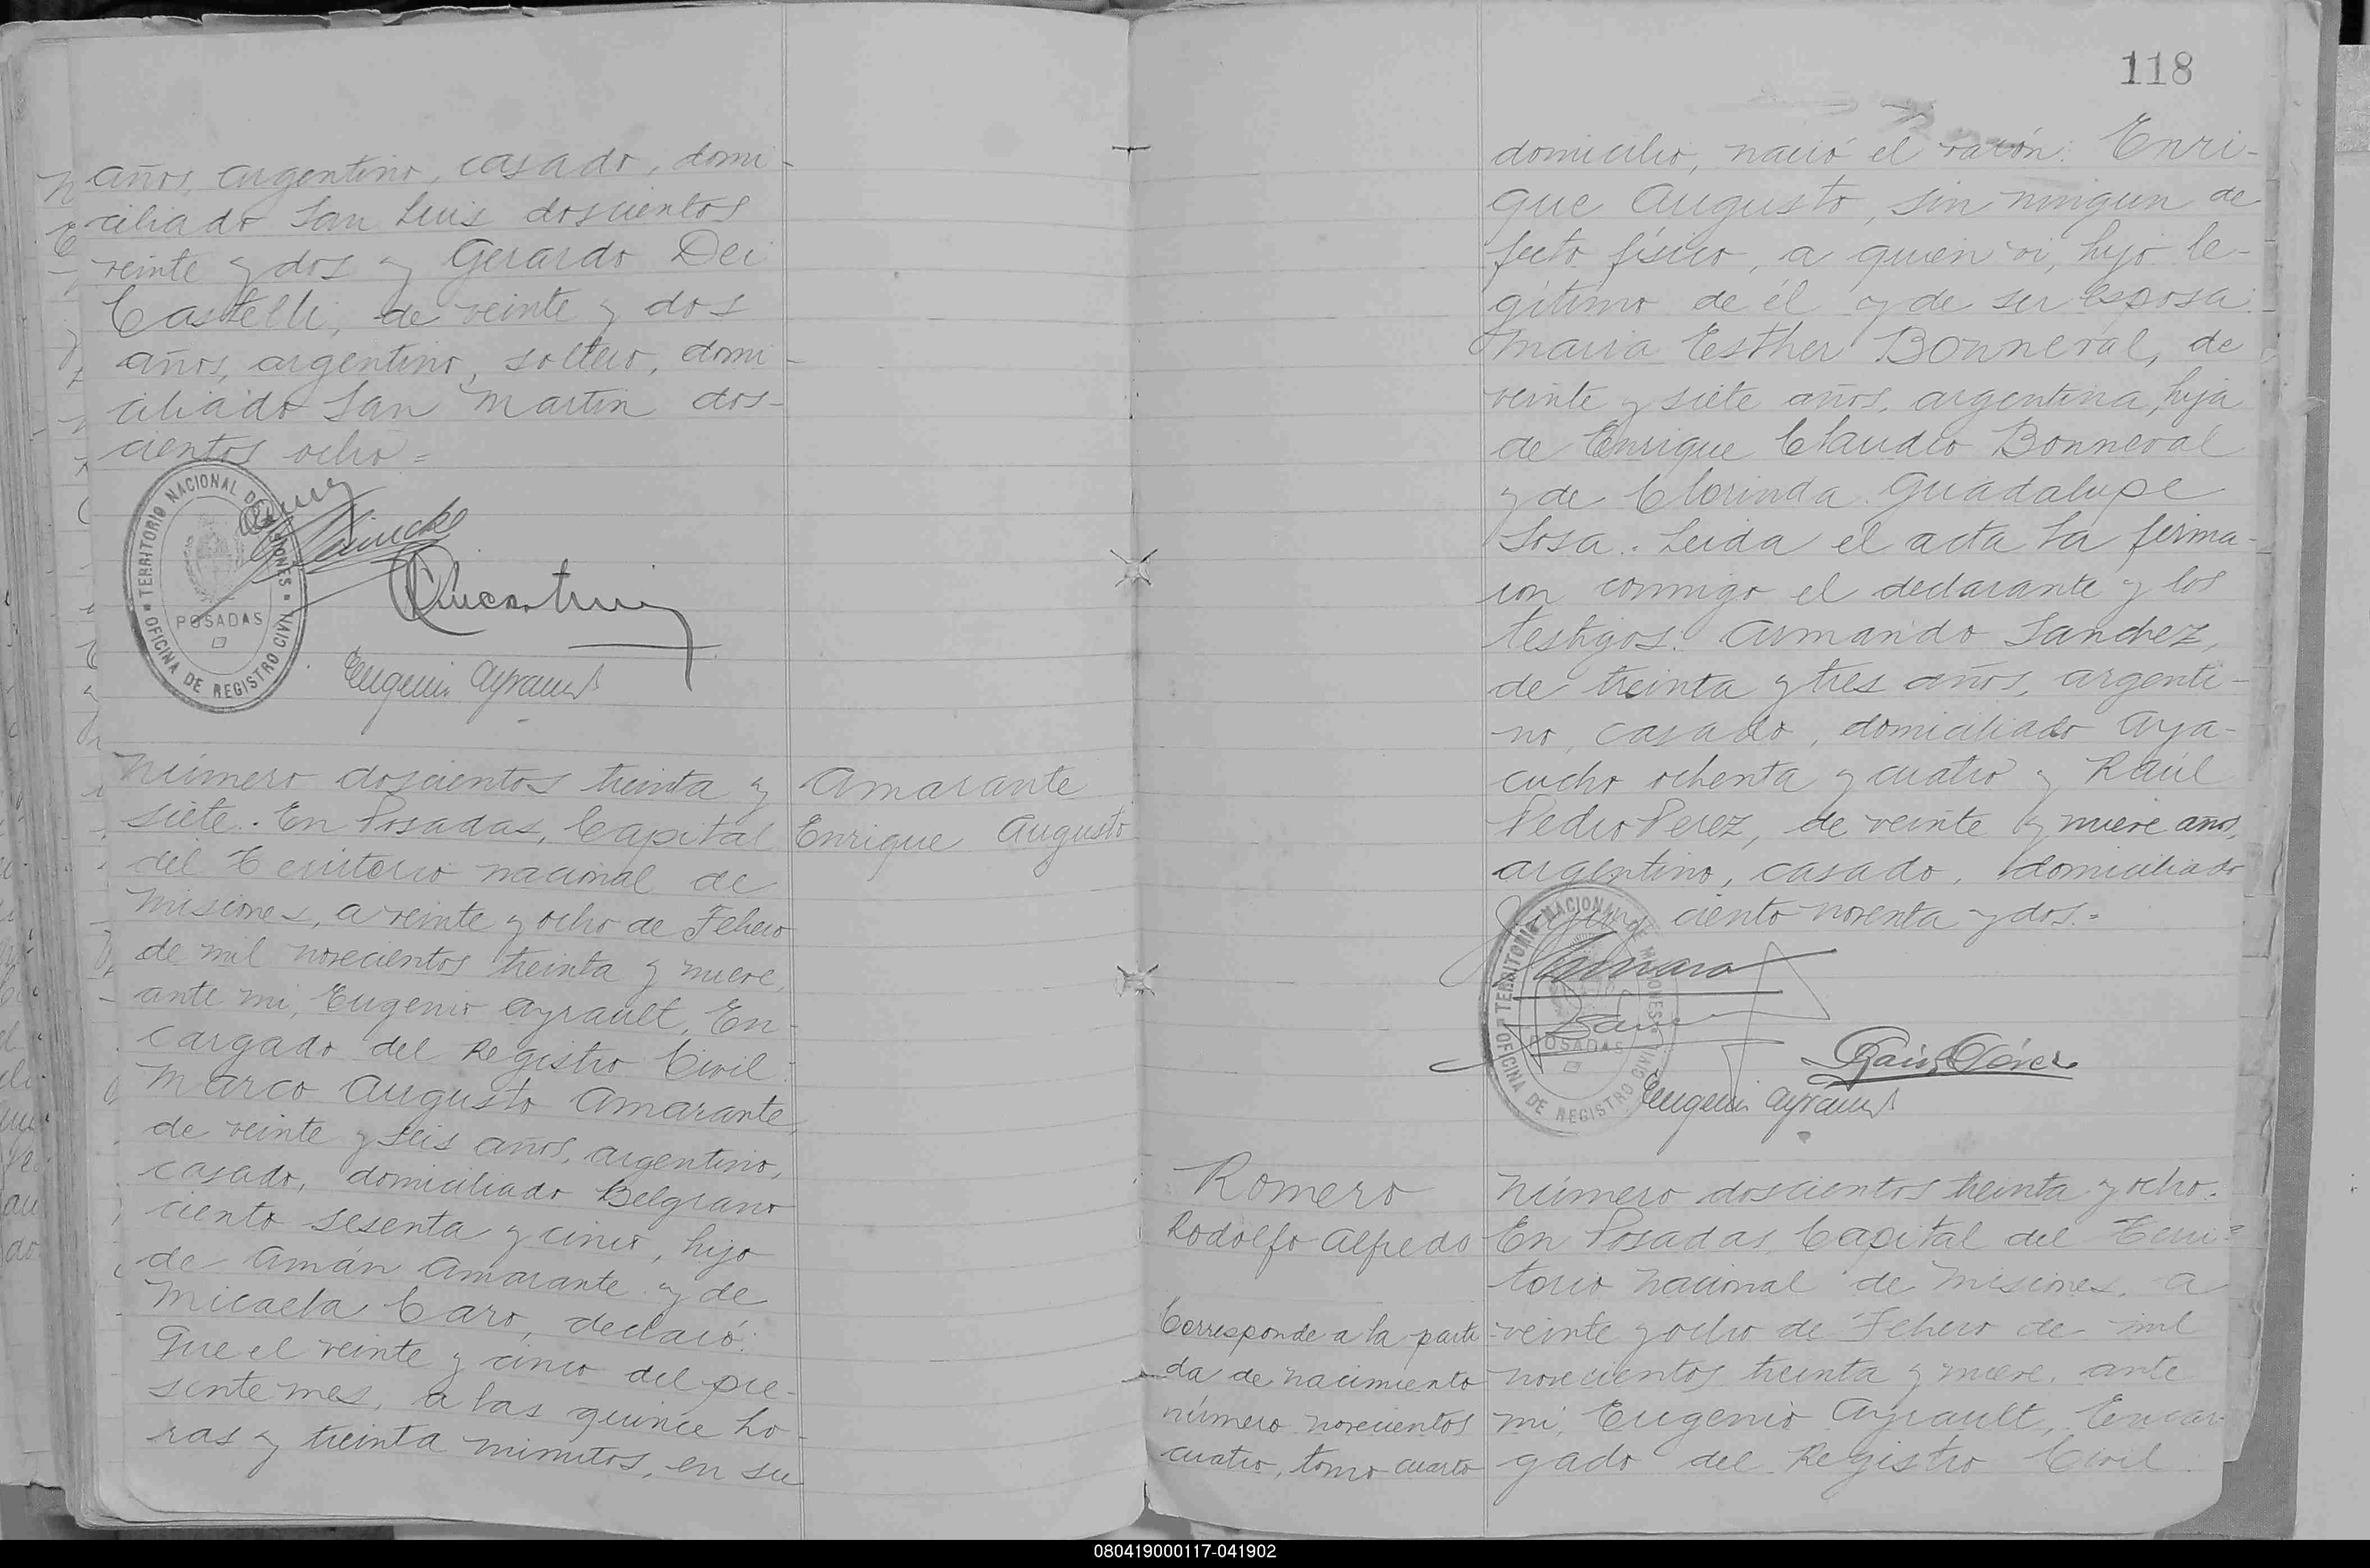 años, argentino, casado, domi-
ciliado San Luis doscientos
veinte y dos y Gerardo Dei
Castelli, de veinte y dos
años, argentino, soltero, domi-
ciliado San Martin dos-
cientos ocho =
TERRITORIO NACIONAL DE MISIONES
POSADAS
OFICINA DE REGISTRO CIVIL
Eugenio Ayrault
Número doscientos treinta y
siete. En Posadas, Capital
del Territorio nacional de
Misiones, a veinte y ocho de Febrero
de mil novecientos treinta y nueve,
ante mi, Eugenio Ayrault, En-
cargado del Registro Civil:
Marco Augusto Amarante,
de veinte y seis años, argentino,
casado, domiciliado Belgrano
ciento sesenta y cinco, hijo
de Amán Amarante y de
Micaela Caro, declaró:
Que el veinte y cinco del pre-
sente mes, a las quince ho-
ras y treinta minutos, en su
Amarante
Enrique Augusto
118
domicilio, nació el varón: Enri-
que Augusto, sin ningun de
fecto físico, a quien vi, hijo le-
gítimo de él y de su esposa:
Maria Esther Bonneval, de
veinte y siete años, argentina, hija
de Enrique Claudio Bonneval
y de Clorinda Guadalupe
Sosa. Leida el acta la firma-
ron conmigo el declarante y los
testigos: Armando Sanchez,
de treinta y tres años, argenti-
no, casado, domiciliado Aya-
cucho ochenta y cuatro y Raúl
Pedro Perez, de veinte y nueve años,
argentino, casado, domiciliado
Jujuy ciento noventa y dos.=
TERRITORIO NACIONAL DE MISIONES
POSADAS
OFICINA DE REGISTRO CIVIL
Eugenio Ayrault
Romero
Rodolfo Alfredo
Corresponde a la parti
da de nacimiento
número novecientos
cuatro, tomo cuarto
Número doscientos treinta y ocho.
En Posadas, Capital del Terri-
torio nacional de Misiones, a
veinte y ocho de Febrero de mil
novecientos treinta y nueve, ante
mi, Eugenio Ayrault, Encar-
gado del Registro Civil
080419000117-041902